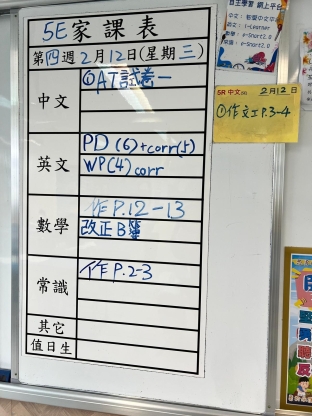 5E 家課表
第四週 2月12日(星期三)
中文
①AT試卷一
英文
PD (6)+corr(5)
WP(4) corr
數學
作P.12-13
改正B簿
常識
作P.2-3
其它
值日生
自主學習 網上平台
5R 中文 2月12日
①作文工P.3-4